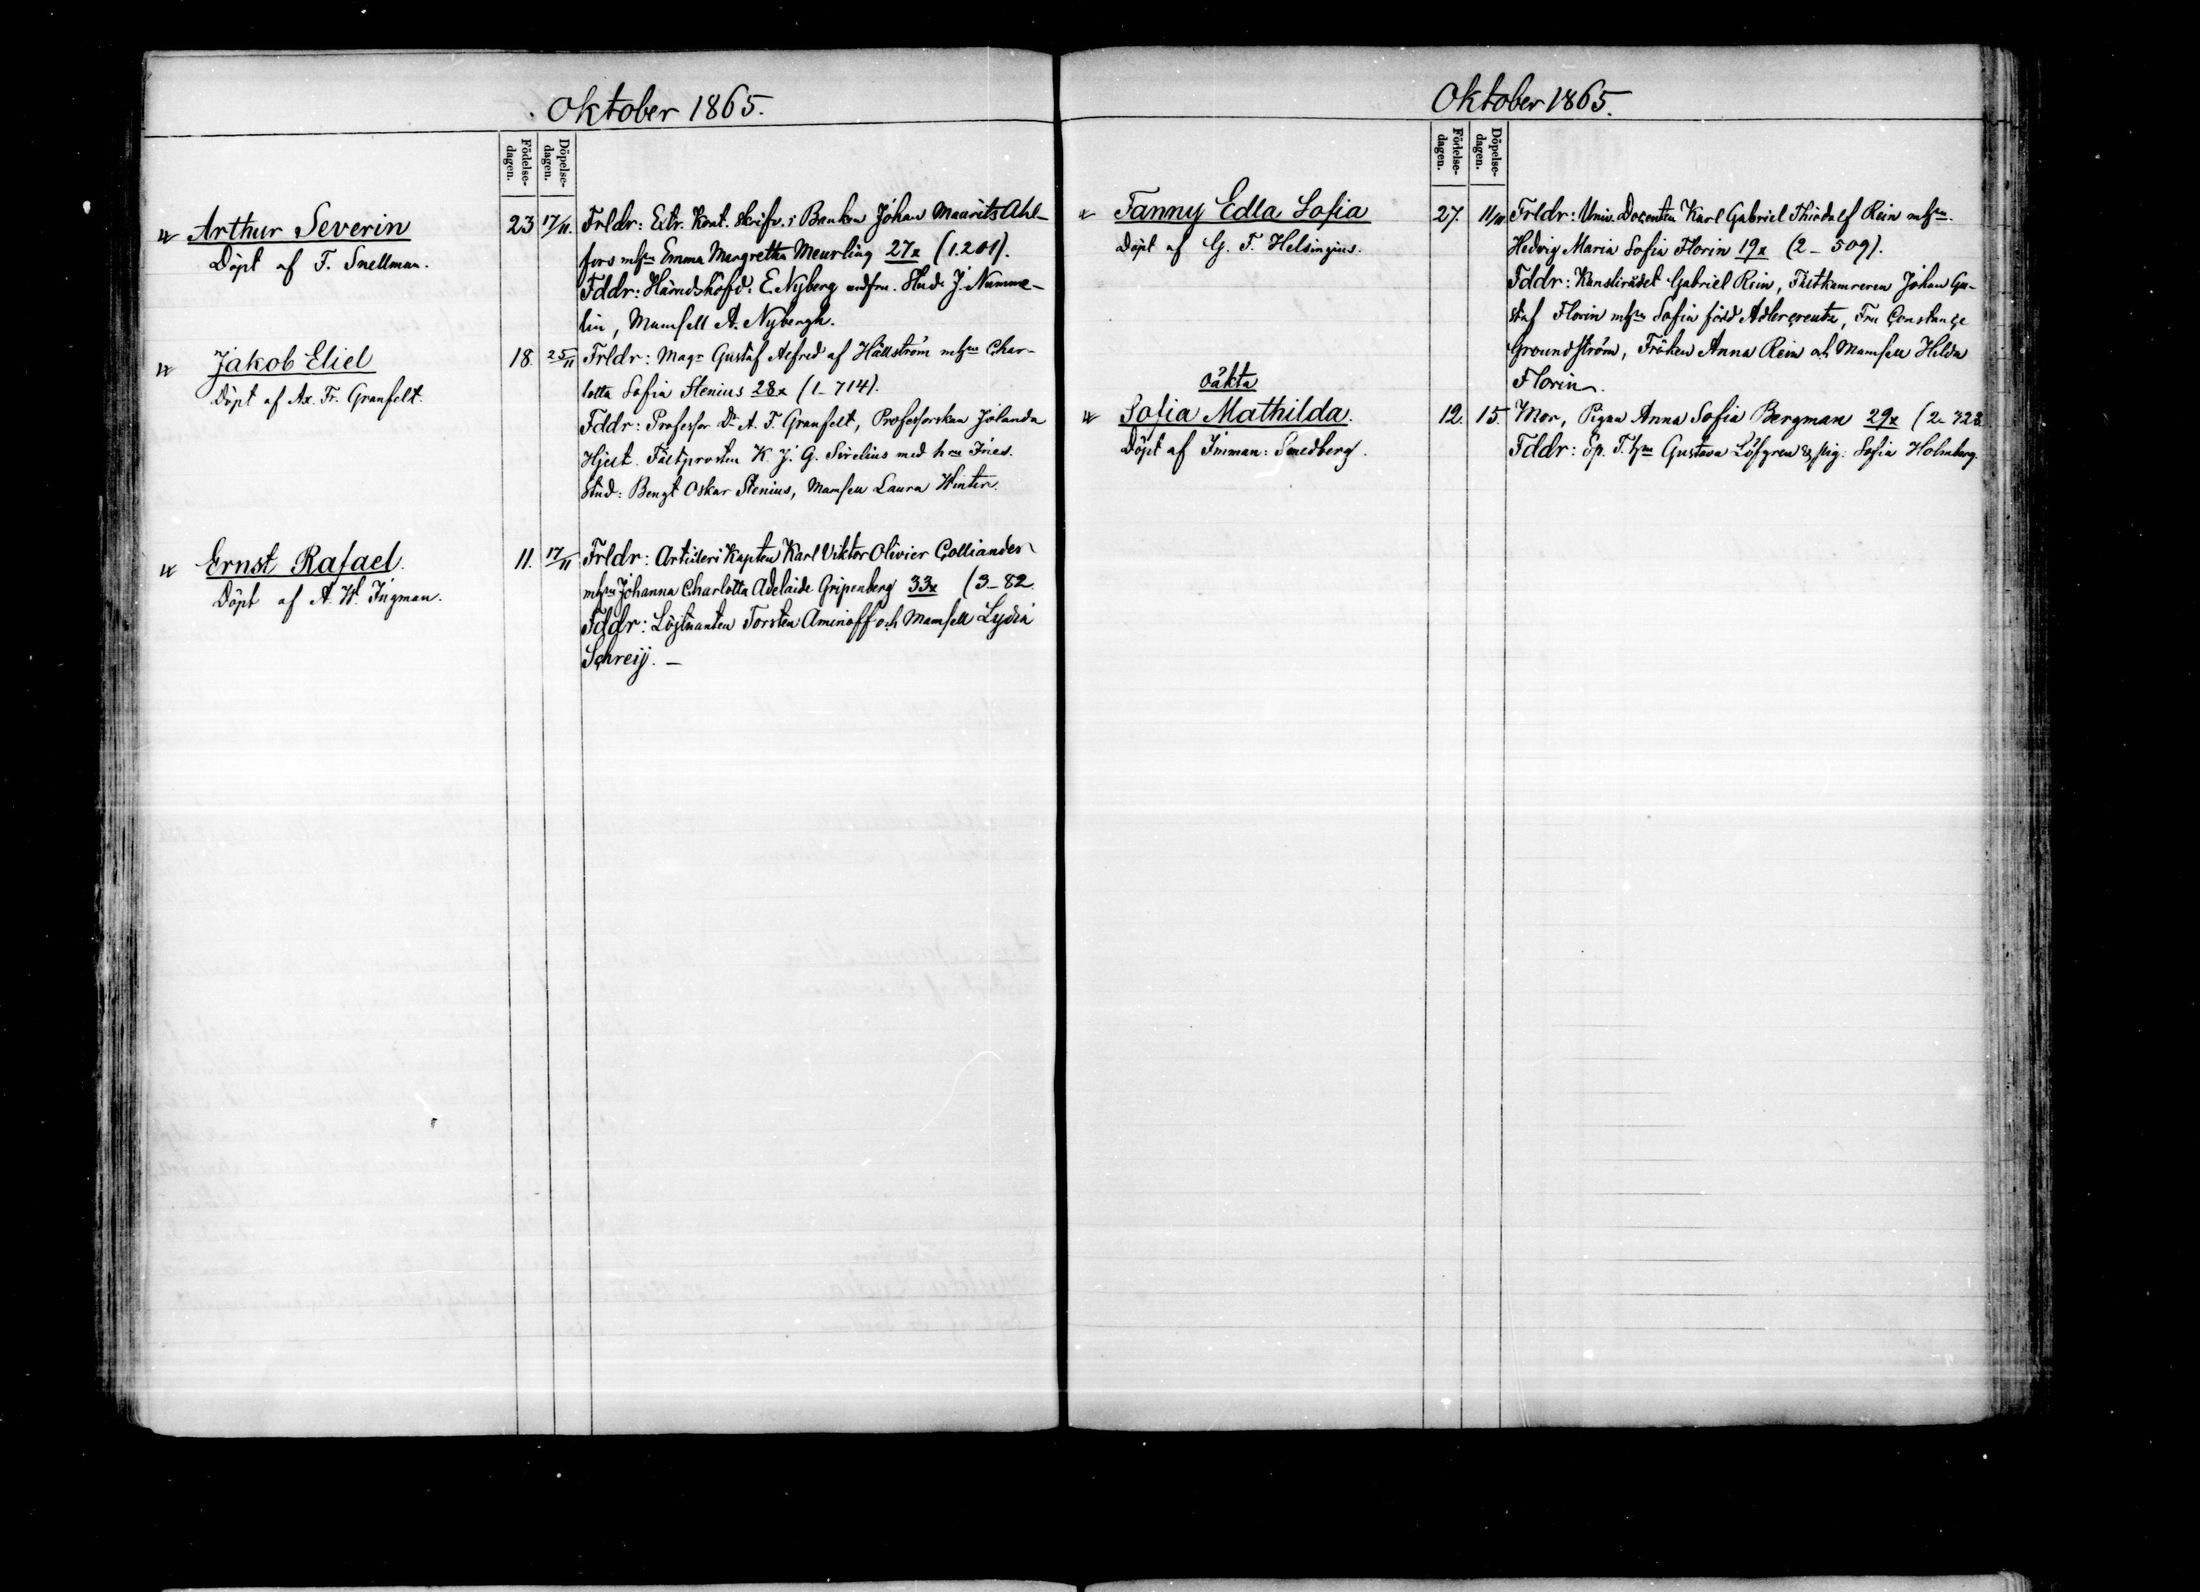 Oktober 1865.
Födelse-
dagen.
Döpelse-
dagen.
Arthur Severin
Döpt af F. Snellman.
23
17/11.
Frldr: Extr. Kont. skrifv. i Banken Johan Maurits Ahl-
fors mhu Emma Margretha Meurling 27x (1.201).
Fddr: Häradshöfd: E. Nyberg Stud: J. Numme-
lin, Mamsell A. Nybergh.
Jakob Eliel
Döpt af Ax. Fr. Granfelt.
18.
25/11
Frldr: Magr Gustaf Alfred af Hällström mhu Char-
lotta Sofia Stenius 28x (1-714).
Fddr: Professor Dr A. F. Granfelt, Professorskan Jolanda
Hjelt. Fältprosten K. J. G. Sirelius med hu Ines.
Stud: Bengt Oskar Stenius, Mamsell Laura Winter.
Ernst Rafael.
Döpt af A. W. Ingman.
11.
17/11
Frldr: Artilleri Kapten Karl Viktor Olivier Colliander
mhu Johanna Charlotta Adelaide Gripenberg 33x (3-82
Fddr: Löjtnanten Torsten Aminoff och Mamsell Lydia
Schreij. —
Oktober 1865.
Födelse-
dagen.
Döpelse-
dagen.
Fanny Edla Sofia
Döpt af G. F. Helsingius.
27.
11/11
Frldr: Univ. Docenten Karl Gabriel Thiodolf Rein mhu
Hedvig Maria Sofia Florin 19x (2-509).
Fddr: Kanslirådet Gabriel Rein, Fältkamreren Johan Gu-
staf Florin mhu Sofia född Adlercreutz, Fru Constance
Groundström, Fröken Anna Rein och Mamsell Hilda
Florin.
oäkta
Sofia Mathilda.
Döpt af Imman: Smedberg.
12.
15.
Mor, Pigan Anna Sofia Bergman 29x (2-728
Fddr: Sp. T. hu Gustava Löfgren & pig: Sofia Holmberg.